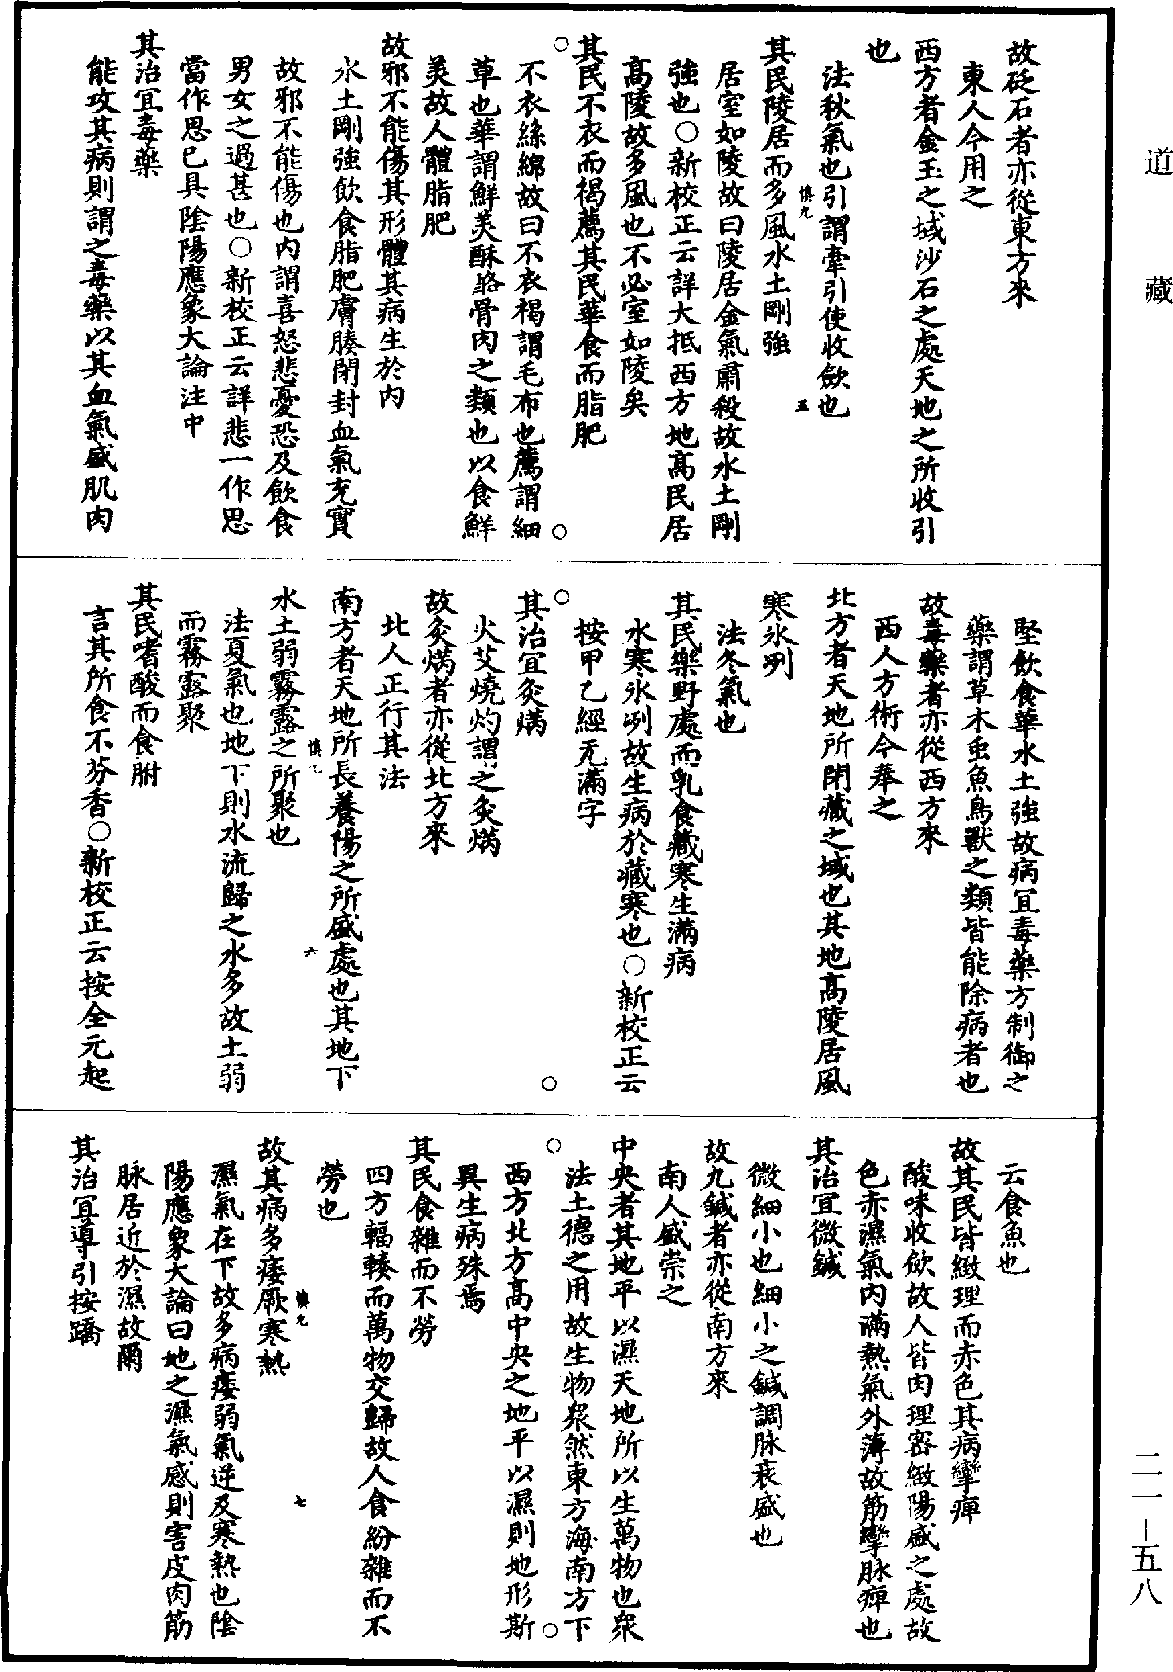 道藏
故砭石者亦從東方來
東人今用之
西方者金玉之域沙石之處天地之所收引
也
法秋氣也引謂牽引使收斂也
慎九
五
其民陵居而多風水土剛強
居室如陵故曰陵居金氣肅殺故水土剛
強也○新校正云詳大抵西方地高民居
高陵故多風也不必室如陵矣
其民不衣而褐薦其民華食而脂肥
不衣絲綿故曰不衣褐謂毛布也薦謂細
草也華謂鮮美酥酪骨肉之類也以食鮮
美故人體脂肥
故邪不能傷其形體其病生於內
水土剛強飲食脂肥膚腠閉封血氣充實
故邪不能傷也內謂喜怒悲憂恐及飲食
男女之過甚也○新校正云詳悲一作思
當作思已具陰陽應象大論注中
其治宜毒藥
能攻其病則謂之毒藥以其血氣盛肌肉
堅飲食華水土強故病宜毒藥方制御之
藥謂草木虫魚鳥獸之類皆能除病者也
故毒藥者亦從西方來
西人方術今奉之
北方者天地所閉藏之域也其地高陵居風
寒冰冽
法冬氣也
其民樂野處而乳食藏寒生滿病
水寒冰冽故生病於藏寒也○新校正云
按甲乙經无滿字
其治宜灸焫
火艾燒灼謂之灸焫
故灸焫者亦從北方來
北人正行其法
南方者天地所長養陽之所盛處也其地下
慎九
六
水土弱霧露之所聚也
法夏氣也地下則水流歸之水多故土弱
而霧露聚
其民嗜酸而食胕
言其所食不芬香○新校正云按全元起
云食魚也
故其民皆緻理而赤色其病攣痺
酸味收斂故人皆肉理密緻陽盛之處故
色赤濕氣內滿熱氣外薄故筋攣脉痺也
其治宜微鍼
微細小也細小之鍼調脉衰盛也
故九鍼者亦從南方來
南人盛崇之
中央者其地平以濕天地所以生萬物也眾
法土德之用故生物眾然東方海南方下
西方北方高中央之地平以濕則地形斯
異生病殊焉
其民食雜而不勞
四方輻輳而萬物交歸故人食紛雜而不
勞也
慎九
七
故其病多痿厥寒熱
濕氣在下故多病痿弱氣逆及寒熱也陰
陽應象大論曰地之濕氣感則害皮肉筋
脉居近於濕故爾
其治宜導引按蹻
二一—五八